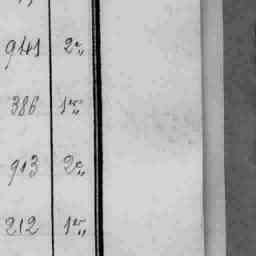 941 2e„
386 1er„
913 2e„
212 1er„